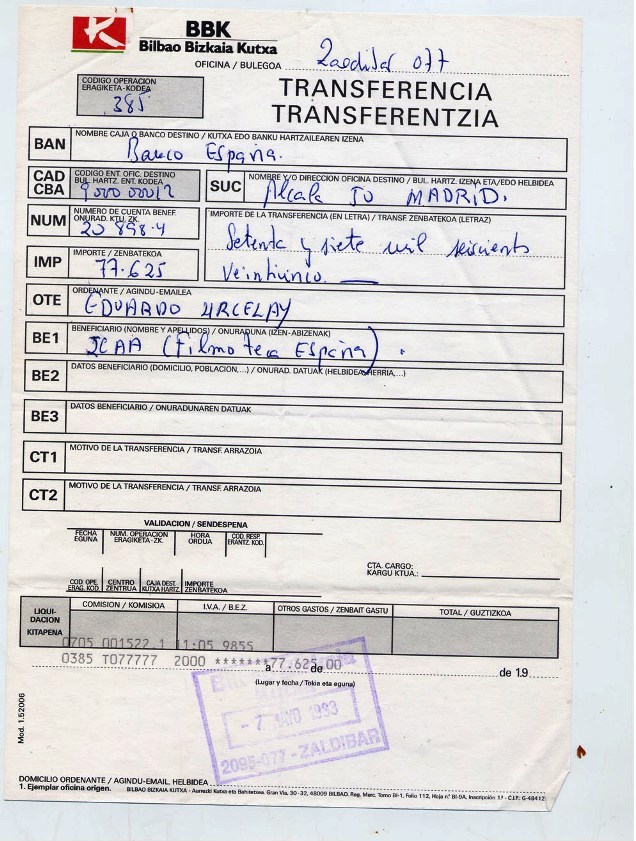 BBK
Bilbao Bizkaia Kutxa
OFICINA / BULEGOA Zaldibar 077
CODIGO OPERACION
ERAGIKETA-KODEA
385
TRANSFERENCIA
TRANSFERENTZIA
BAN
NOMBRE CAJA O BANCO DESTINO / KUTXA EDO BANKU HARTZAILEAREN IZENA
Banco España.
CAD
CBA
CODIGO ENT. OFIC. DESTINO
BUL. HARTZ. ENT. KODEA
9000 00012
SUC
NOMBRE Y/O DIRECCION OFICINA DESTINO / BUL. HARTZ. IZENA ETA/EDO HELBIDEA
Alcala 50 MADRID.
NUM
NUMERO DE CUENTA BENEF.
ONURAD. KTU. ZK.
20898.4
IMPORTE DE LA TRANSFERENCIA (EN LETRA) / TRANSF. ZENBATEKOA (LETRAZ)
Setenta y siete mil seiscientos
veinticinco.
IMP
IMPORTE / ZENBATEKOA
77.625
OTE
ORDENANTE / AGINDU-EMAILEA
EDUARDO URCELAY
BE1
BENEFICIARIO (NOMBRE Y APELLIDOS) / ONURADUNA (IZEN-ABIZENAK)
ICAA (Filmoteca España).
BE2
DATOS BENEFICIARIO (DOMICILIO, POBLACION,...) / ONURAD. DATUAK (HELBIDEA, HERRIA,...)
BE3
DATOS BENEFICIARIO / ONURADUNAREN DATUAK
CT1
MOTIVO DE LA TRANSFERENCIA / TRANSF. ARRAZOIA
CT2
MOTIVO DE LA TRANSFERENCIA / TRANSF. ARRAZOIA
VALIDACION / SENDESPENA
FECHA
EGUNA
NUM. OPERACION
ERAGIKETA-ZK.
HORA
ORDUA
COD. RESP.
ERANTZ. KOD.
CTA. CARGO:
KARGU KTUA.:
COD. OPE.
ERAG. KOD.
CENTRO
ZENTRUA
CAJA DEST.
KUTXA HARTZ.
IMPORTE
ZENBATEKOA
LIQUI-
DACION
KITAPENA
COMISION / KOMISIOA
I.V.A. / B.E.Z.
OTROS GASTOS / ZENBAIT GASTU
TOTAL / GUZTIZKOA
0705 001522.1 11:05 9855
0385 T077777 2000 *******77.625,00
a de de 19
(Lugar y fecha / Tokia eta eguna)
- 7 MAYO 1993
2095-077 - ZALDIBAR
Mod. 1.52006
DOMICILIO ORDENANTE / AGINDU-EMAIL. HELBIDEA
1. Ejemplar oficina origen.
BILBAO BIZKAIA KUTXA - Aurrezki Kutxa eta Bahitetxea. Gran Vía, 30-32, 48009 BILBAO. Reg. Merc. Tomo BI-1, Folio 112, Hoja n.º BI-9A, Inscripción 1.ª - C.I.F.: G-48412